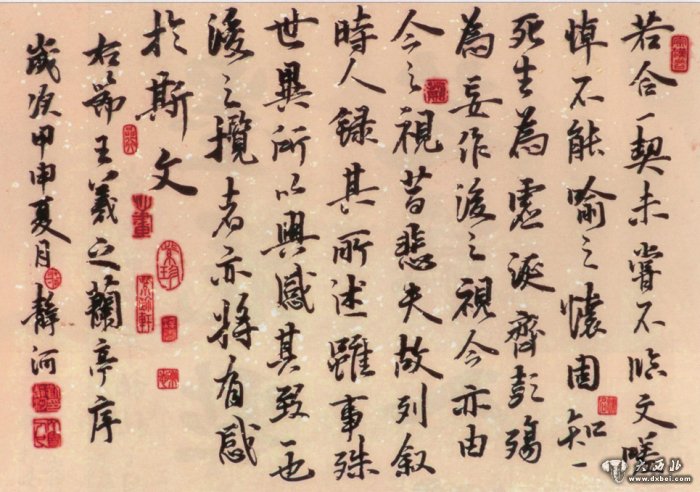 若合一契未嘗不臨文嗟
悼不能喻之懷固知一
死生為虛誕齊彭殤
為妄作後之視今亦由
今之視昔悲夫故列叙
時人錄其所述雖事殊
世異所以興感其致一也
後之攬者亦將有感
於斯文
右節王羲之蘭亭序
歲次甲申夏月靜河
大西北
www.dxbei.com